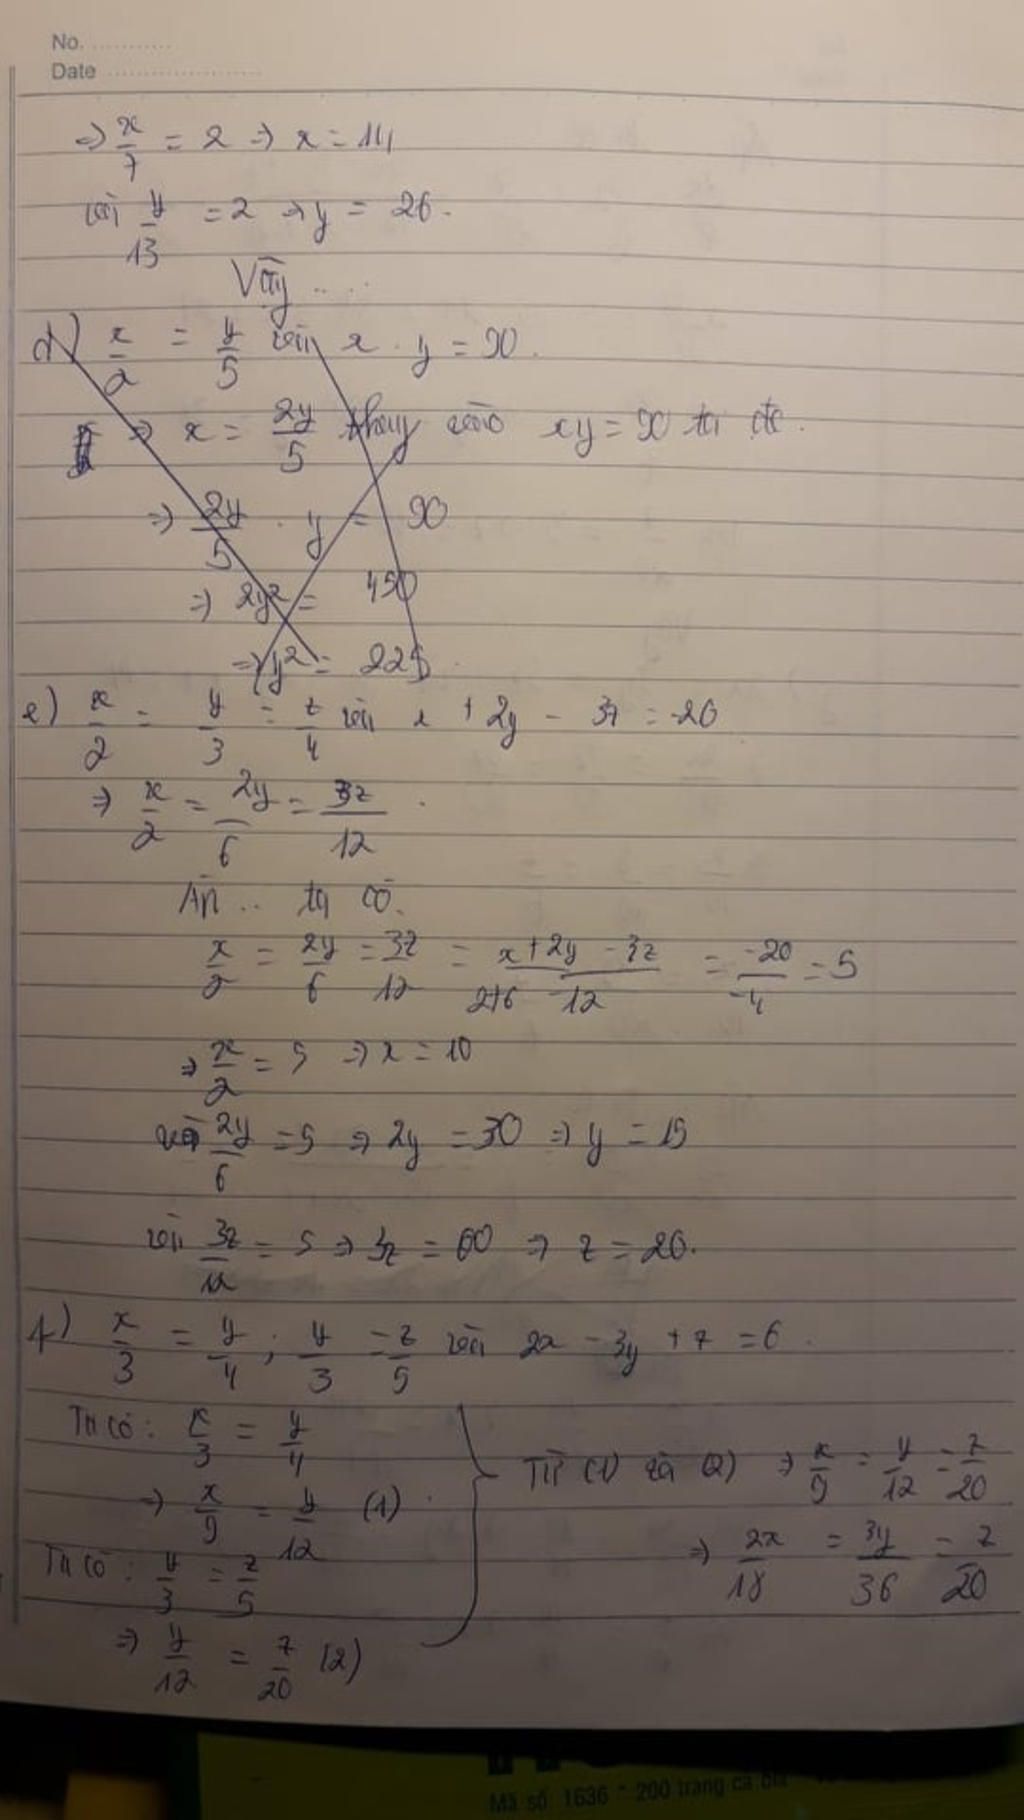 No. ............
Date ......................
=> x/7 = 2 => x = 14
với y/13 = 2 => y = 26.
Vậy ....
d) x/2 = y/5 với x . y = 90.
=> x = 2y/5 thay vào xy = 90 ta đc.
=> 2y/5 . y = 90
=> 2y² = 450
=> y² = 225
e) x/2 = y/3 = z/4 với x + 2y - 3z = -20
=> x/2 = 2y/6 = 3z/12.
AD .. ta có.
x/2 = 2y/6 = 3z/12 = x+2y-3z/2+6-12 = -20/-4 = 5
=> x/2 = 5 => x = 10
và 2y/6 = 5 => 2y = 30 => y = 15
với 3z/12 = 5 => 3z = 60 => z = 20.
f) x/3 = y/4 ; y/3 = z/5 với 2x - 3y + z = 6.
Ta có : x/3 = y/4
=> x/9 = y/12 (1).
Ta có : y/3 = z/5
=> y/12 = z/20 (2)
Từ (1) và (2) => x/9 = y/12 = z/20
=> 2x/18 = 3y/36 = z/20
Mã số 1636 * 200 trang cả bìa